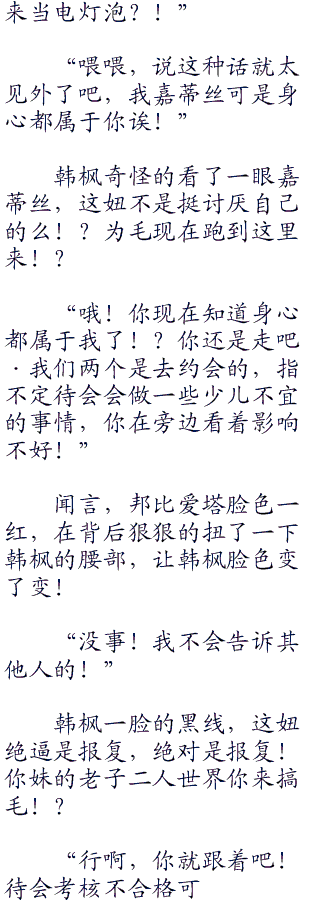 来当电灯泡？！”
“喂喂，说这种话就太
见外了吧，我嘉蒂丝可是身
心都属于你诶！”
韩枫奇怪的看了一眼嘉
蒂丝，这妞不是挺讨厌自己
的么！？为毛现在跑到这里
来！？
“哦！你现在知道身心
都属于我了！？你还是走吧
·我们两个是去约会的，指
不定待会会做一些少儿不宜
的事情，你在旁边看着影响
不好！”
闻言，邦比爱塔脸色一
红，在背后狠狠的扭了一下
韩枫的腰部，让韩枫脸色变
了变！
“没事！我不会告诉其
他人的！”
韩枫一脸的黑线，这妞
绝逼是报复，绝对是报复！
你妹的老子二人世界你来搞
毛！？
“行啊，你就跟着吧！
待会考核不合格可